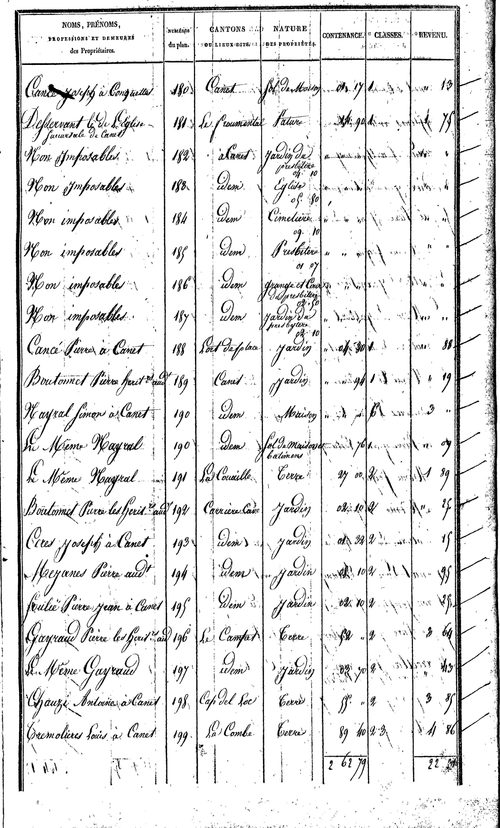 NOMS, PRÉNOMS, PROFESSIONS ET DEMEURES des Propriétaires. NUMÉROS du plan. CANTONS OU LIEUX-DITS. NATURE DES PROPRIÉTÉS. CONTENANCE. CLASSES. REVENU.
Cancé Joseph à 180 Canet Sol de Maison 17 1 13
Desservant de l'Eglise succursale de Canet 181 Le froumental Pature 90 1 75
Non Imposables 182 à Canet Jardin du presbitere 04 10
Non Imposables 183 idem Eglise 05 80
Non imposables 184 idem Cimetiere 09 10
Non imposables 185 idem Presbitere 01 07
Non imposable 186 idem grange et Cour du presbitere 02 50
Non imposables 187 idem Jardin du presbytere 02 10
Cancé Pierre à Canet 188 Lort de Jolace Jardin 04 30 1 88
Boutonnet Pierre herit. audt 189 Canet Jardin 94 1 19
Nayral Simon à Canet 190 idem Maison 6 3
Le Même Nayral 190 idem Sol de Maison et batimens 76 1 09
Le Même Nayral 191 La Couaille Terre 27 00 2 1 89
Boutonnet Pierre les herit. audt 192 Carriere Cave Jardin 02 10 2 25
Ceres Joseph à Canet 193 idem Jardin 01 32 2 15
Mejanes Pierre audt 194 idem Jardin 10 2 95
Pierre Jean à Canet 195 idem Jardin 02 10 2 25
Gayraud Pierre les herit. aud 196 Le Campet Terre 52 2 3 64
Le Même Gayraud 197 idem Jardin 03 70 2 43
Chauzi Antoine à Canet 198 Cap del Loc Terre 55 2 3 85
Tremolieres Louis à Canet 199 La Combe Terre 89 40 2 3 4 86
2 62 79 22